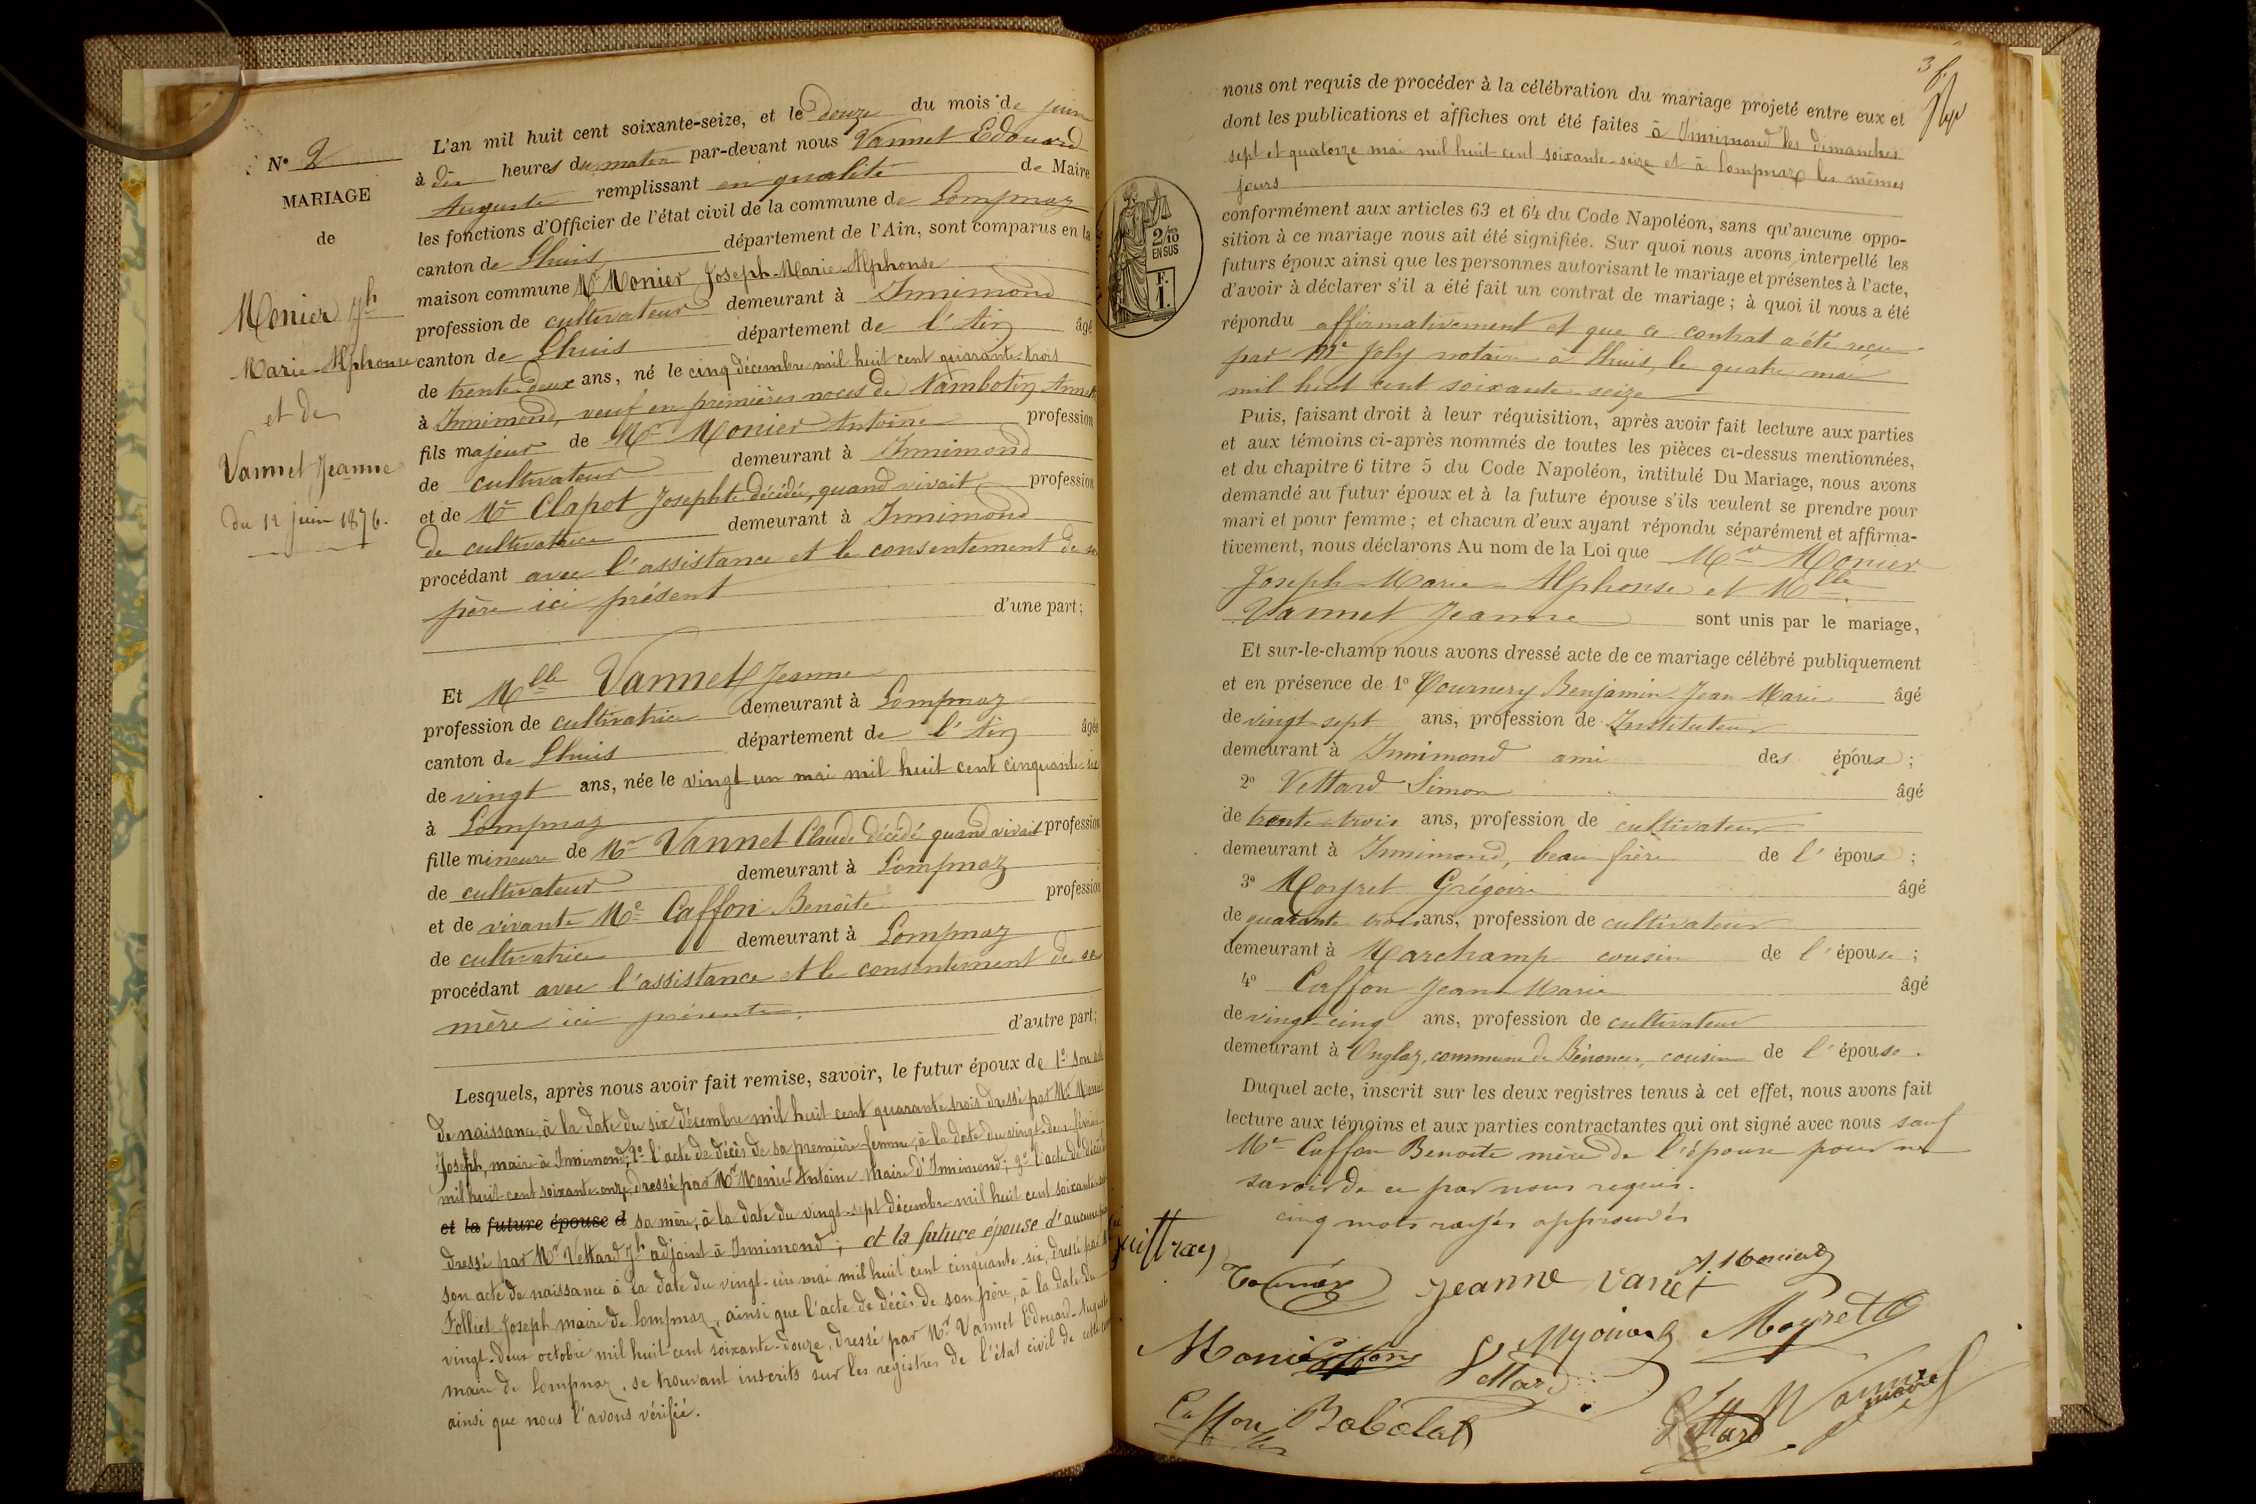 N° 2
MARIAGE
de
Monier Jh
Marie-Alphonse
et de
Vannet Jeanne
du 12 juin 1876.
L'an mil huit cent soixante-seize, et le douze du mois de juin
à dix heures du matin par-devant nous Vannet Edouard
Auguste remplissant en qualité de Maire
les fonctions d'Officier de l'état civil de la commune de Lompnaz
canton de Lhuis département de l'Ain, sont comparus en la
maison commune Mr Monier Joseph-Marie-Alphonse
profession de cultivateur demeurant à Innimond
canton de Lhuis département de l'Ain âgé
de trente-deux ans, né le cinq décembre mil huit cent quarante-trois
à Innimond, veuf en premières noces de Nambotin
fils majeur de Mr Monier Antoine profession
de cultivateur demeurant à Innimond
et de Me Clapot Josephte décédée, quand vivait profession
de cultivatrice demeurant à Innimond
procédant avec l'assistance et le consentement de
père ici présent
d'une part;
Et Mlle Vannet Jeanne
profession de cultivatrice demeurant à Lompnaz
canton de Lhuis département de l'Ain âgée
de vingt ans, née le vingt un mai mil huit cent cinquante-six
à Lompnaz
fille mineure de Mr Vannet Claude décédé quand vivait profession
de cultivateur demeurant à Lompnaz
et de vivante Me Caffon Benoîte profession
de cultivatrice demeurant à Lompnaz
procédant avec l'assistance et le consentement de sa
mère ici présente.
d'autre part;
Lesquels, après nous avoir fait remise, savoir, le futur époux de 1° son acte
de naissance, à la date du six décembre mil huit cent quarante-trois dressé par Mr
Joseph, maire à Innimond; 2° l'acte de décès de sa première femme, à la date du vingt-deux février
mil huit cent soixante-onze, dressé par Mr Monier Antoine Maire d'Innimond; 3° l'acte de décès
et la future épouse d sa mère, à la date du vingt-sept décembre mil huit cent soixante
dressé par Mr Vettard Jh adjoint à Innimond; et la future épouse d'aucune
son acte de naissance à la date du vingt-un mai mil huit cent cinquante-six, dressé par
Folliet Joseph maire de Lompnaz, ainsi que l'acte de décès de son père, à la date du
vingt-deux octobre mil huit cent soixante-douze, dressé par Mr Vannet Edouard-Auguste
maire de Lompnaz, se trouvant inscrits sur les registres de l'état civil de cette
ainsi que nous l'avons vérifié.
3
nous ont requis de procéder à la célébration du mariage projeté entre eux et
dont les publications et affiches ont été faites à Innimond les dimanches
sept et quatorze mai mil huit cent soixante-seize et à Lompnaz les mêmes
jours
2/10
EN SUS
F.
1.
conformément aux articles 63 et 64 du Code Napoléon, sans qu'aucune oppo-
sition à ce mariage nous ait été signifiée. Sur quoi nous avons interpellé les
futurs époux ainsi que les personnes autorisant le mariage et présentes à l'acte,
d'avoir à déclarer s'il a été fait un contrat de mariage; à quoi il nous a été
répondu affirmativement et que ce contrat a été reçu
par Me Joly notaire à Lhuis, le quatre mai
mil huit cent soixante-seize
Puis, faisant droit à leur réquisition, après avoir fait lecture aux parties
et aux témoins ci-après nommés de toutes les pièces ci-dessus mentionnées,
et du chapitre 6 titre 5 du Code Napoléon, intitulé Du Mariage, nous avons
demandé au futur époux et à la future épouse s'ils veulent se prendre pour
mari et pour femme; et chacun d'eux ayant répondu séparément et affirma-
tivement, nous déclarons Au nom de la Loi que Mr Monier
Joseph-Marie-Alphonse et Mlle
Vannet Jeanne sont unis par le mariage,
Et sur-le-champ nous avons dressé acte de ce mariage célébré publiquement
et en présence de 1° Tournery Benjamin Jean Marie âgé
de vingt-sept ans, profession de Instituteur
demeurant à Innimond ami des époux;
2° Vettard Simon âgé
de trente-trois ans, profession de cultivateur
demeurant à Innimond, beau frère de l'époux;
3° Moyret Grégoire âgé
de quarante trois ans, profession de cultivateur
demeurant à Marchamp cousin de l'épouse;
4° Caffon Jean Marie âgé
de vingt-cinq ans, profession de cultivateur
demeurant à Onglaz, commune de Bénonces, cousin de l'épouse.
Duquel acte, inscrit sur les deux registres tenus à cet effet, nous avons fait
lecture aux témoins et aux parties contractantes qui ont signé avec nous sauf
Me Caffon Benoîte mère de l'épouse pour ne
savoir de ce par nous requis.
cinq mots rayés approuvés
A. Monier
Jeanne Vanet
Moyret G
Monier
Vettard
Caffon
Babolat
Vettard
Vannet
maire